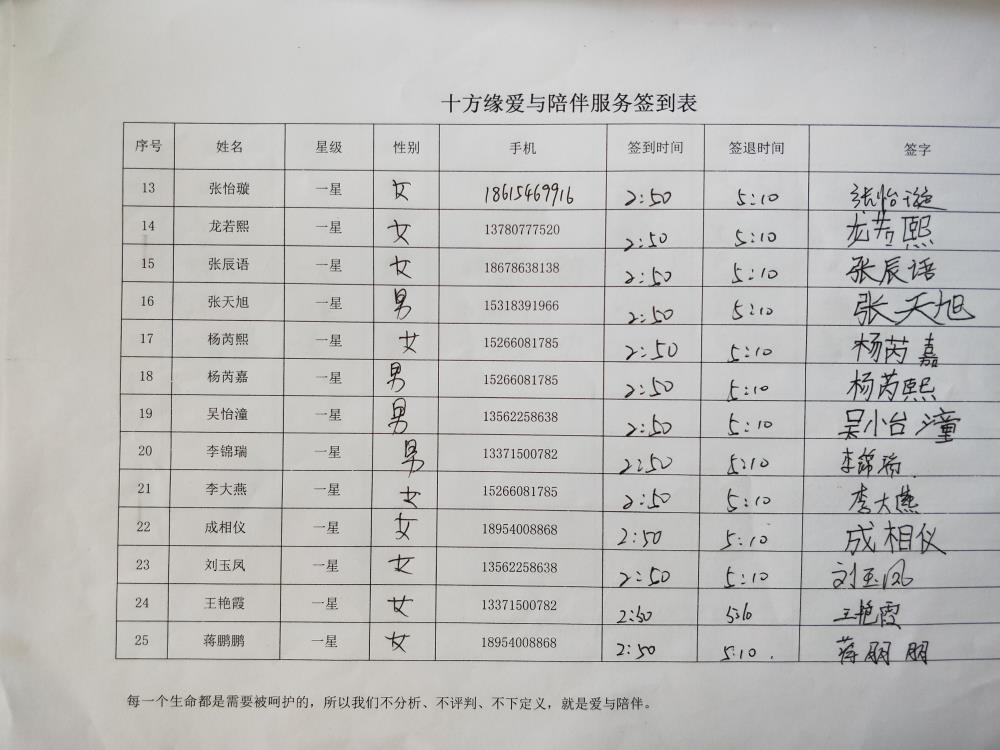 十方缘爱与陪伴服务签到表
序号 姓名 星级 性别 手机 签到时间 签退时间 签字
13 张怡璇 一星 女 18615469916 2:50 5:10 张怡璇
14 龙若熙 一星 女 13780777520 2:50 5:10 龙若熙
15 张辰语 一星 女 18678638138 2:50 5:10 张辰语
16 张天旭 一星 男 15318391966 2:50 5:10 张天旭
17 杨芮熙 一星 女 15266081785 2:50 5:10 杨芮嘉
18 杨芮嘉 一星 男 15266081785 2:50 5:10 杨芮熙
19 吴怡潼 一星 男 13562258638 2:50 5:10 吴怡潼
20 李锦瑞 一星 男 13371500782 2:50 5:10 李锦瑞
21 李大燕 一星 女 15266081785 2:50 5:10 李大燕
22 成相仪 一星 女 18954008868 2:50 5:10 成相仪
23 刘玉凤 一星 女 13562258638 2:50 5:10 刘玉凤
24 王艳霞 一星 女 13371500782 2:50 5:10 王艳霞
25 蒋鹏鹏 一星 女 18954008868 2:50 5:10 蒋朋朋
每一个生命都是需要被呵护的，所以我们不分析、不评判、不下定义，就是爱与陪伴。